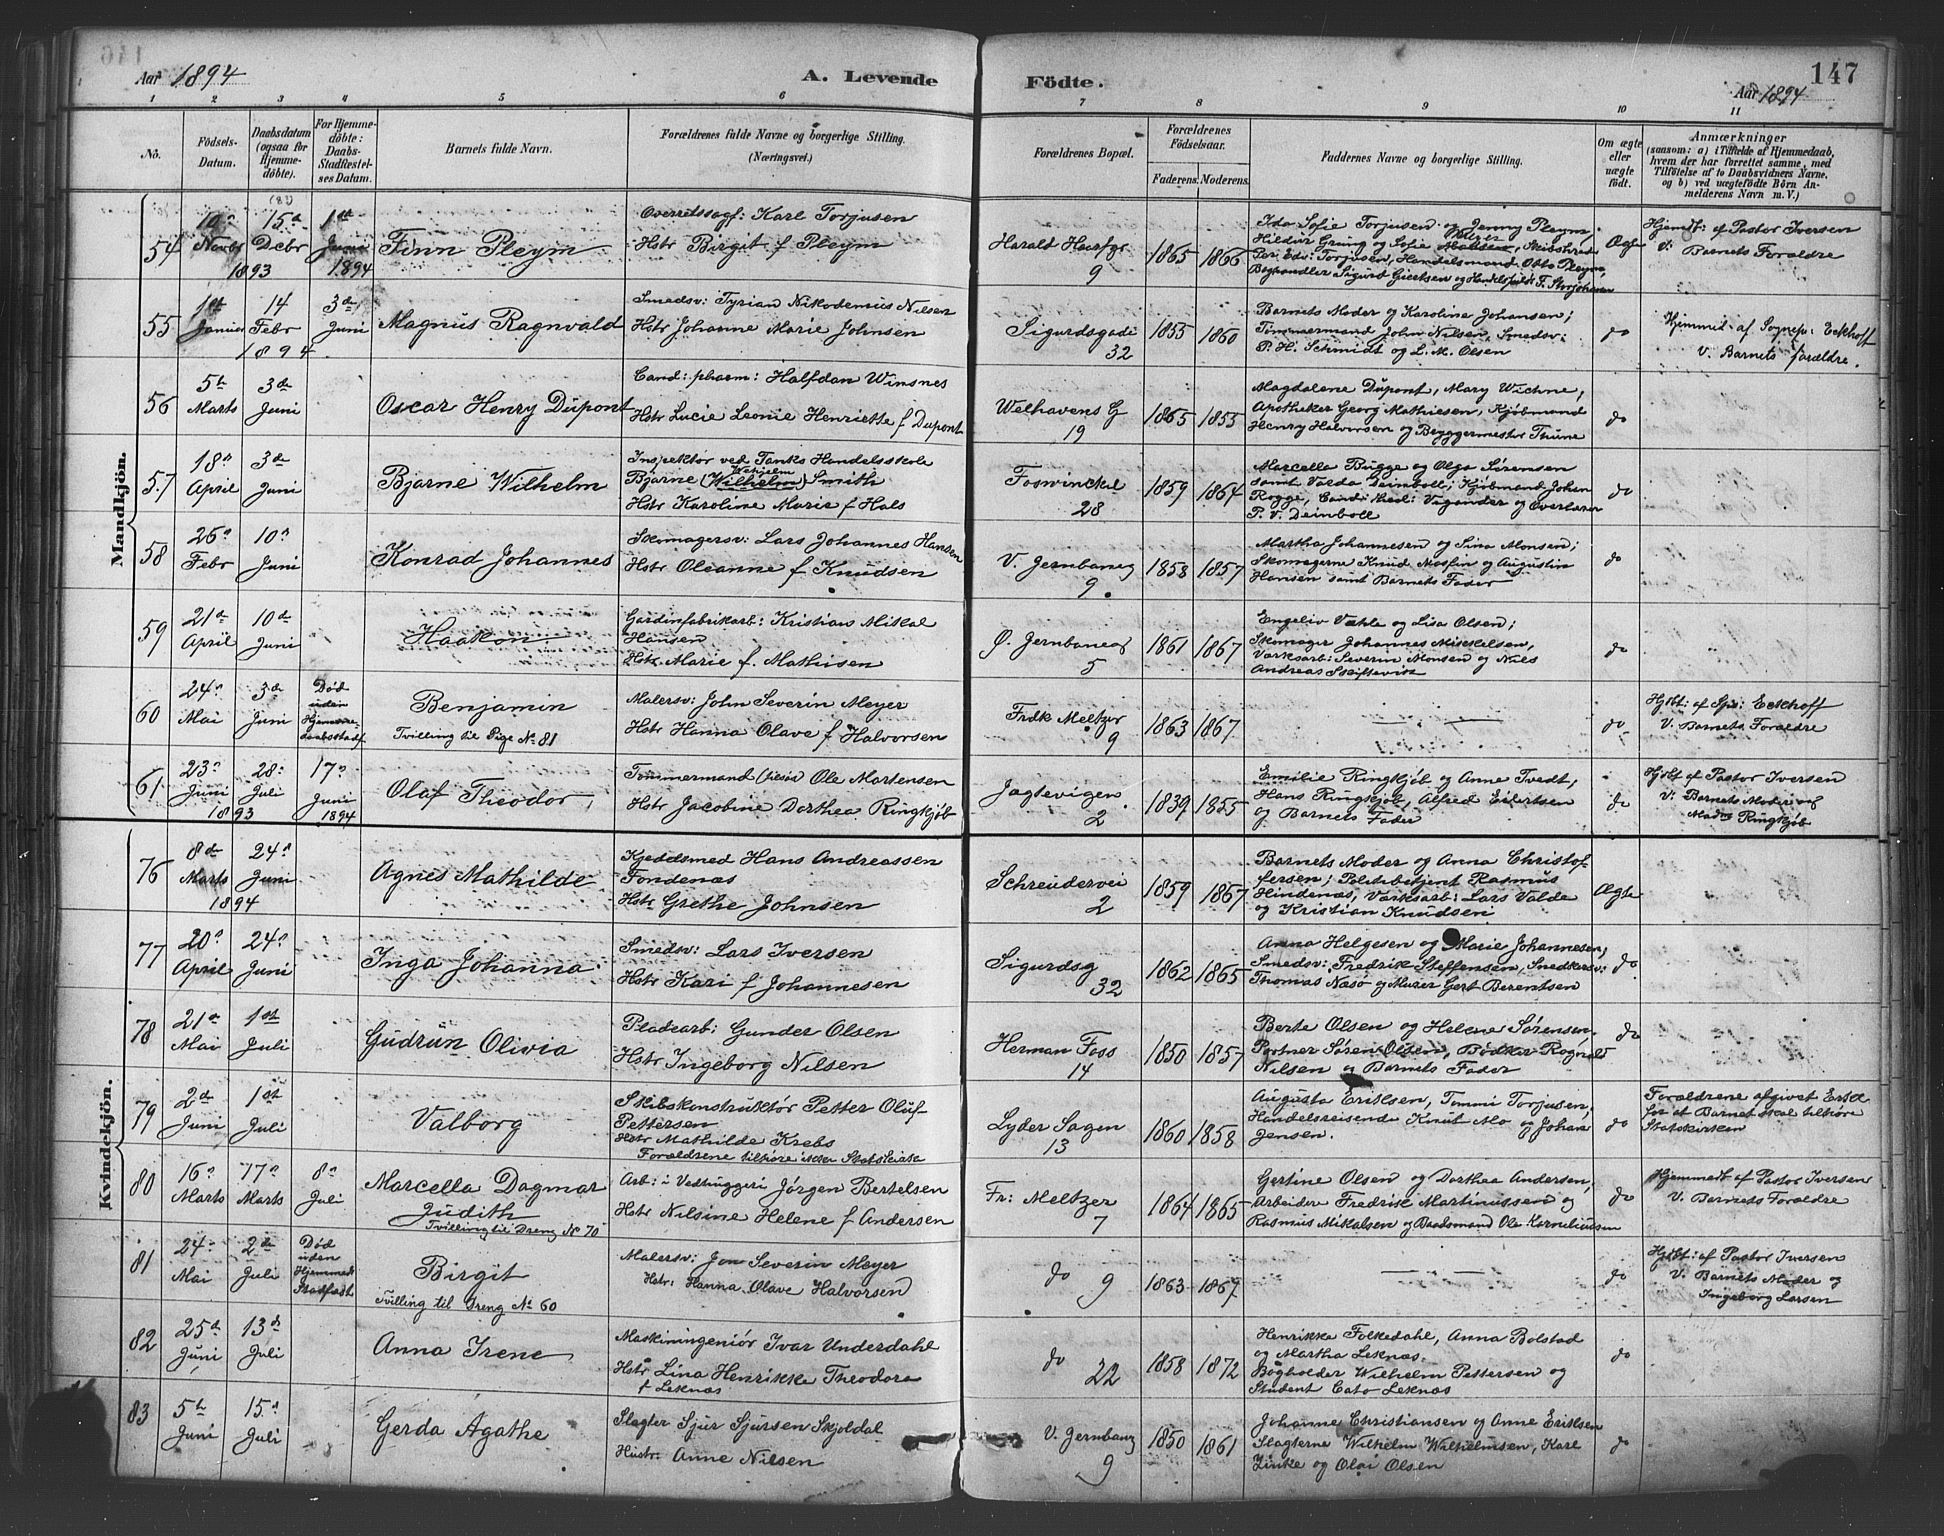 Aar 1894
A. Levende Födte.
147
Aar 1894
1 2 3 4 5 6 7 8 9 10 11
No.
Födsels-Datum.
Daabsdatum (ogsaa for Hjemme-döbte).
For Hjemme-döbte: Daabs-Stadfæstel-ses Datum.
Barnets fulde Navn.
Forældrenes fulde Navne og borgerlige Stilling.
(Næringsvei.)
Forældrenes Bopæl.
Forældrenes Födselsaar.
Faderens. Moderens.
Faddernes Navne og borgerlige Stilling.
Om ægte eller uægte födt.
Anmærkninger
(saasom: a) i Tilfælde af Hjemmedaab,
hvem der har forrettet samme, med
Tilföielse af to Daabsvidners Navne,
og b) ved uægtefödte Börn An-
melderens Navn m. V.)
Mandkjön.
54 10 Novbr 15 Decbr 1893 1st Juni 1894
Finn Pleym
Overretssagf: Karl Torjusen
Hstr Birgit f Pleym
Harald Haarfgr 9
1865 1866
Ida Sofie Torjusen og Jenny Pleym
Hildur Grung og Sofie
Per Edv: Torjusen, Handelsmand Otto Pleym,
Boghandler Sigurd Giertsen og
Ægte
Hjemdt: af Pastor Iversen
V. Barnets Forældre
55 1st Januar 14 Febr 1894 3d Juni
Magnus Ragnvald
Smedsv: Tyrian Nikodemus Nilsen
Hstr Johanne Marie Johnsen
Sigurdsgade 32
1855 1860
Barnets Moder og Karoline Johansen;
Tømmermand John Nilsen, Smedsv:
P. H. Schmidt og L. M. Olsen
do
Hjemmdt. af Sognep: Eckhoff
v. Barnets forældre.
56 5t Marts 3de Juni
Oscar Henry Dupont
Cand: pharm: Halfdan Winsnes
Hstr Lucie Leonie Henriette f Dupont
Welhavens G 19
1865 1855
Magdalene Dupont, Mary Wichne,
Apotheker Georg Mathiesen, Kjøbmand
Henry Halvorsen og Bryggermester Thune
do
57 18 April 3de Juni
Bjarne Wilhelm
Inspektør ved Tanks Handelsskole
Bjarne (Wilhelm) Smith
Hstr Karoline Marie f Hals
Fosswinckel 28
1859 1864
Marcella Bugge og Olga Sørensen
samt Valda Deinboll; Kjøbmand Johan
Rogge, Cand: med: Vigander og Overlærer
P. V. Deinboll
do
58 26 Febr 10 Juni
Konrad Johannes
Skomagersv: Lars Johannes Hansen
Hstr Oleanne f Knudsen
V. Jernbaneg 9.
1858 1857
Martha Johannesen og Sina Monsen;
Skomagerne Knud Mosfin og Augustin
Hansen samt Barnets Fader
do
59 21d April 10d Juni
Haakon
Gardinfabrikarb: Kristian Mikal
Hansen
Hstr Marie f. Mathisen
Ø. Jernbaneg 5
1861 1867
Engeliv Vahle og Lisa Olsen;
Skomager Johannes Mickelsen,
Værksarb: Severin Monsen og Nils
Andreas Skiftesvik
do
60 24 Mai 3d Juni Død uden Hjemme-daabsstadf
Benjamin
Tvilling til Pige No 81
Malersv: John Severin Meyer
Hstr Hanna Olave f Halvorsen
Frdk Meltzer 9
1863 1867
do
Hjbt: af Spr: Eckhoff
V. Barnets Forældre
61 23 Juni 28 Juli 1893 17 Juni 1894
Olaf Theodor
Tømmermand Ole Martensen
Hstr Jacobine Dorthea Ringkjøb
Jægtevigen 2
1839 1855
Emilie Ringkjøb og Anne Tvedt,
Hans Ringkjøb, Alfred Eilertsen
og Barnets Fader
do
Hjbt af Pastor Iversen
V. Barnets Moder og
Ringkjøb
Kvindekjön.
76 8d Marts 24 Juni 1894
Agnes Mathilde
Kjeddsmed Hans Andreassen
Fondenæs
Hstr Grethe Johnsen
Schreudervei 2
1859 1867
Barnets Moder og Anna Christof-
fersen; Politibetjent Rasmus
Hindenæs, Værksarb: Lars Valde
og Kristian Knudsen
Ægte
77 20 April 24 Juni
Inga Johanna
Smedsv: Lars Iversen
Hstr Kari f Johannesen
Sigurdsg 32
1862 1865
Anna Helgesen og Marie Johannesen;
Smedsv: Fredrik Steffensen, Snedkersv:
Thomas Næsø og Murer Gert Berentsen
do
78 21 Mai 1st Juli
Gudrun Olivia
Pladsarb: Gunder Olsen
Hstr Ingeborg Nilsen
Herman Foss 14
1850 1857
Berte Olsen og Helene Sørensen,
Portner Søren Olsen, Bødker Rognald
Nilsen og Barnets Fader
do
79 2d Juni 1st Juli
Valborg
Skibskonstruktør Petter Oluf
Pettersen
Hstr Mathilde Krebs
Forældrene tilhøre ikke Statskirken
Lyder Sagen 13
1860 1858
Augusta Eriksen, Tommi Torjusen,
Handelsreisende Knut Mo og Johan
Jensen.
do
Forældrene afgivet Erkl
for at Barnet skal tilhøre
Statskirken
80 16 Marts 17 Marts 8 Juli
Marcella Dagmar
Judith
Tvilling til Dreng No 70
Arb: i Vedhuggeri Jørgen Bertelsen
Hstr Nilsine Helene f Andersen
Fr: Meltzer 7
1864 1865
Gertine Olsen og Dorthea Andersen,
Arbeider Fredrik Martinussen og
Rasmus Mikalsen og Baadsmand Ole Korneliussen
do
Hjemmedt af Pastor Iversen
V. Barnets Forældre
81 24 Mai 2de Juli Død uden Hjemmed Stadfæst
Birgit
Tvilling til Dreng No 60
Malersv: Jon Severin Meyer
Hstr: Hanna Olave Halvorsen
do 9
1863 1867
do
Hjbt: af Pastor Iversen
V. Barnets Moder og
Ingeborg Larsen
82 25d Juni 13d Juli
Anna Irene
Maskiningeniør Ivar Underdahl
Hstr Lina Henrikke Theodora
f Leknæs
do 22
1858 1872
Henrikke Folkedahl, Anna Bolstad
og Martha Leknæs.
Bogholder Wilhelm Pettersen og
Student Cato Leknæs
do
83 5t Juni 15 Juli
Gerda Agathe
Slagter Sjur Sjursen Skjoldal
Hustr. Anne Nilsen
V. Jernbaneg 9
1850 1861
Johanne Christiansen og Anne Eriksen
Slagterne Wilhelm Wilhelmsen, Karl
Zinke og Olai Olsen
do